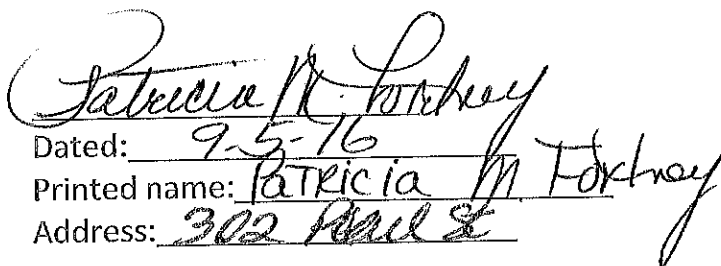 Patricia M. Fortney
Dated: 9-5-16
Printed name: PATRICIA M. Fortney
Address: 302 St